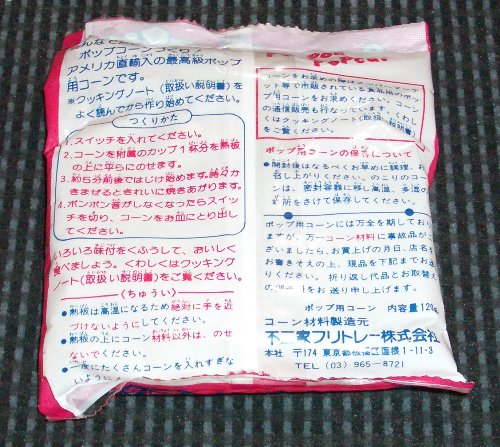 ポップコーン
アメリカ直輸入の最高級ポップ
用コーンです。
※クッキングノート(取扱い説明書)を
よく読んでから作り始めてください。
つくりかた
1. スイッチを入れてください。
2. コーンを附属のカップ1杯分を熱板
の上に平らにのせます。
3. 約5分前後ではじけ始めます。時々か
きまぜるときれいに焼きあがります。
4. ポンポン音がしなくなったらスイッ
チを切り、コーンをお皿にとり出し
てください。
いろいろ味付をくふうして、おいしく
食べましょう。くわしくはクッキング
ノート(取扱い説明書)をご覧ください。
〈ちゅうい〉
●熱板は高温になるため絶対に手を近
づけないようにしてください。
●熱板の上にコーン材料以外は、のせ
ないでください。
●一度にたくさんコーンを入れすぎな
いように
コーンをお求めの際は
ット等で市販されている
プ用コーンをお求めください。コーン
の通信販売も行な
はクッキングノート(取扱い説明書)
をご覧ください。
ポップ用コーンの保存について
●開封後はなるべくお早めに調理、お
召し上がりください。のこりのコー
ンは、密封容器に移し高温、多湿の
場所をさけて保存してください。
ポップ用コーンには万全を期しており
ますが、万一コーン材料に事故品がご
ざいましたら、お買上げの月日、店名を
お書きそえの上、現品を下記までお送
りください。折り返し代品とお取替え
をお送り申し上げます。
ポップ用コーン 内容量120g
コーン材料製造元
不二家フリトレー株式会社
本社 〒174 東京都板橋区蓮根1-11-3
TEL (03) 965-8721